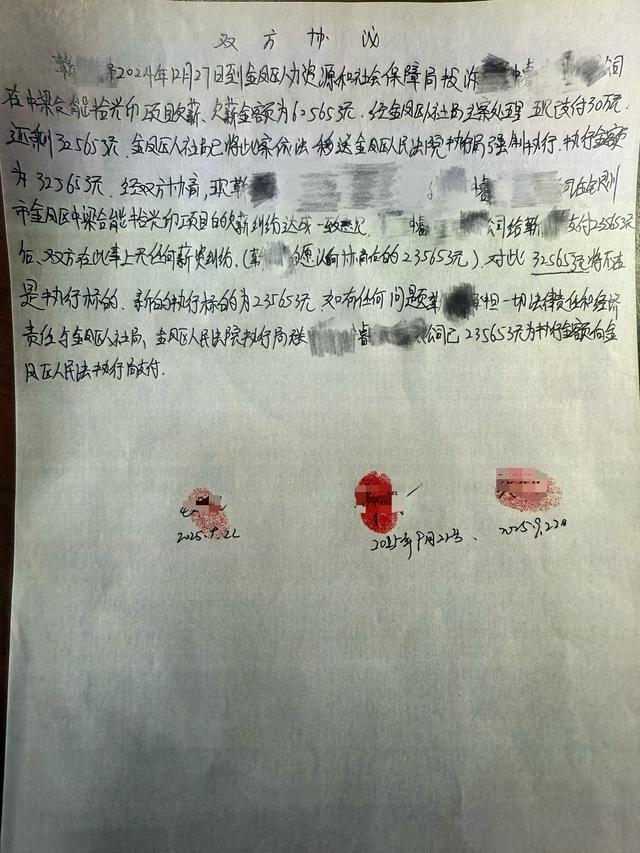 双方协议
于2024年12月27日到金凤区人力资源和社会保障局投诉
在中梁合能拾光印项目欠薪、欠薪金额为625653元. 经金凤区人社局立案处理 现已支付30万元
还剩325653元. 金凤区人社局已将此案依法移送金凤区人民法院执行局强制执行. 执行金额
为325653元. 经双方协商, 现靳 睿 司在银川
市金凤区中梁合能拾光印项目的欠薪纠纷达成一致意见. 睿 公司给靳 支付235653元
后、双方在此事上无任何薪资纠纷. (靳 的愿认可协商后的235653元). 对此325653元将不在
是执行标的. 新的执行标的为235653元. 如有任何问题 承担一切法律责任和经济
责任与金凤区人社局、金凤区人民法院执行局 睿 公司已235653元为执行金额向金
凤区人民法执行局支付.
2025.9.22 2025年9月22号、 2025.9.22日